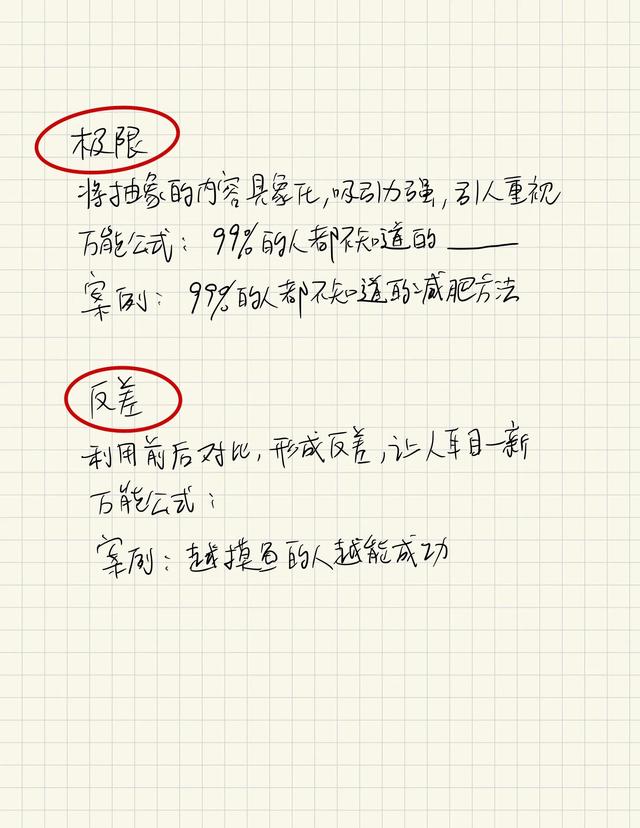 极限
将抽象的内容具象化,吸引力强,引人重视
万能公式: 99%的人都不知道的 ______
案例: 99%的人都不知道的减肥方法
反差
利用前后对比,形成反差,让人耳目一新
万能公式:
案例: 越摸鱼的人越能成功